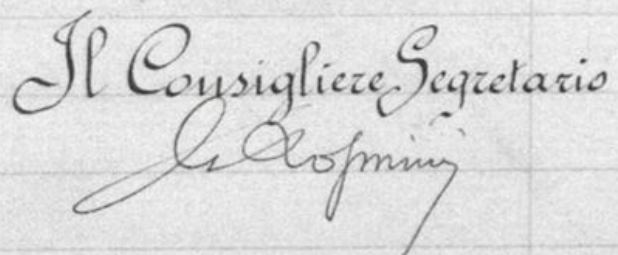 Il Consigliere Segretario
Rosmini